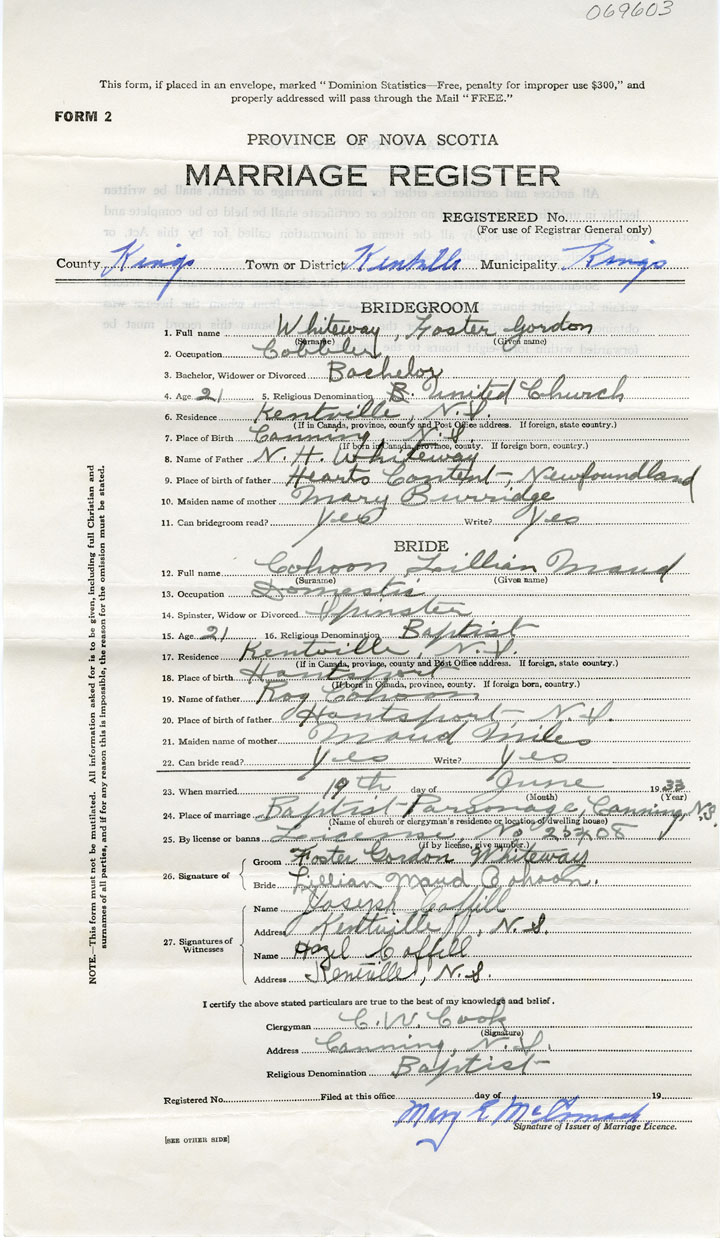 069603
This form, if placed in an envelope, marked "Dominion Statistics—Free, penalty for improper use $300," and
properly addressed will pass through the Mail "FREE."
FORM 2
PROVINCE OF NOVA SCOTIA
MARRIAGE REGISTER
REGISTERED No.
(For use of Registrar General only)
County Kings Town or District Kentville Municipality Kings
BRIDEGROOM
1. Full name Whiteway, Foster Gordon
(Surname) (Given name)
2. Occupation Cobbler
3. Bachelor, Widower or Divorced Bachelor
4. Age 21 5. Religious Denomination B. United Church
6. Residence Kentville, N.S.
(If in Canada, province, county and Post Office address. If foreign, state country.)
7. Place of Birth Canning, N.S.
(If born in Canada, province, county. If foreign born, country.)
8. Name of Father N. H. Whiteway
9. Place of birth of father Hearts Content, Newfoundland
10. Maiden name of mother Mary Burridge
11. Can bridegroom read? Yes Write? Yes
BRIDE
12. Full name Cohoon, Lillian Maud
(Surname) (Given name)
13. Occupation Domestic
14. Spinster, Widow or Divorced Spinster
15. Age 21 16. Religious Denomination Baptist
17. Residence Kentville, N.S.
(If in Canada, province, county and Post Office address. If foreign, state country.)
18. Place of birth Hantsport
(If born in Canada, province, county. If foreign born, country.)
19. Name of father Roy Cohoon
20. Place of birth of father Hantsport, N.S.
21. Maiden name of mother Maud Miles
22. Can bride read? Yes Write? Yes
23. When married 19th day of June 1933
(Month) (Year)
24. Place of marriage Baptist Parsonage, Canning, N.S.
(Name of church or clergyman's residence or location of dwelling house)
25. By license or banns Leicense, No
(if by license, give number.)
26. Signature of
Groom Foster Gordon Whiteway
Bride Lillian Maud Cohoon.
27. Signatures of Witnesses
Name Joseph Coffill
Address Kentville, N.S.
Name Hazel Coffill
Address Kentville, N.S.
I certify the above stated particulars are true to the best of my knowledge and belief.
Clergyman C. W. Cook
(Signature)
Address Canning, N.S.
Religious Denomination Baptist
Registered No. Filed at this office day of 19
Mary E. McCormack
Signature of Issuer of Marriage Licence.
[SEE OTHER SIDE]
NOTE.—This form must not be mutilated. All information asked for is to be given, including full Christian and
surnames of all parties, and if for any reason this is impossible, the reason for the omission must be stated.